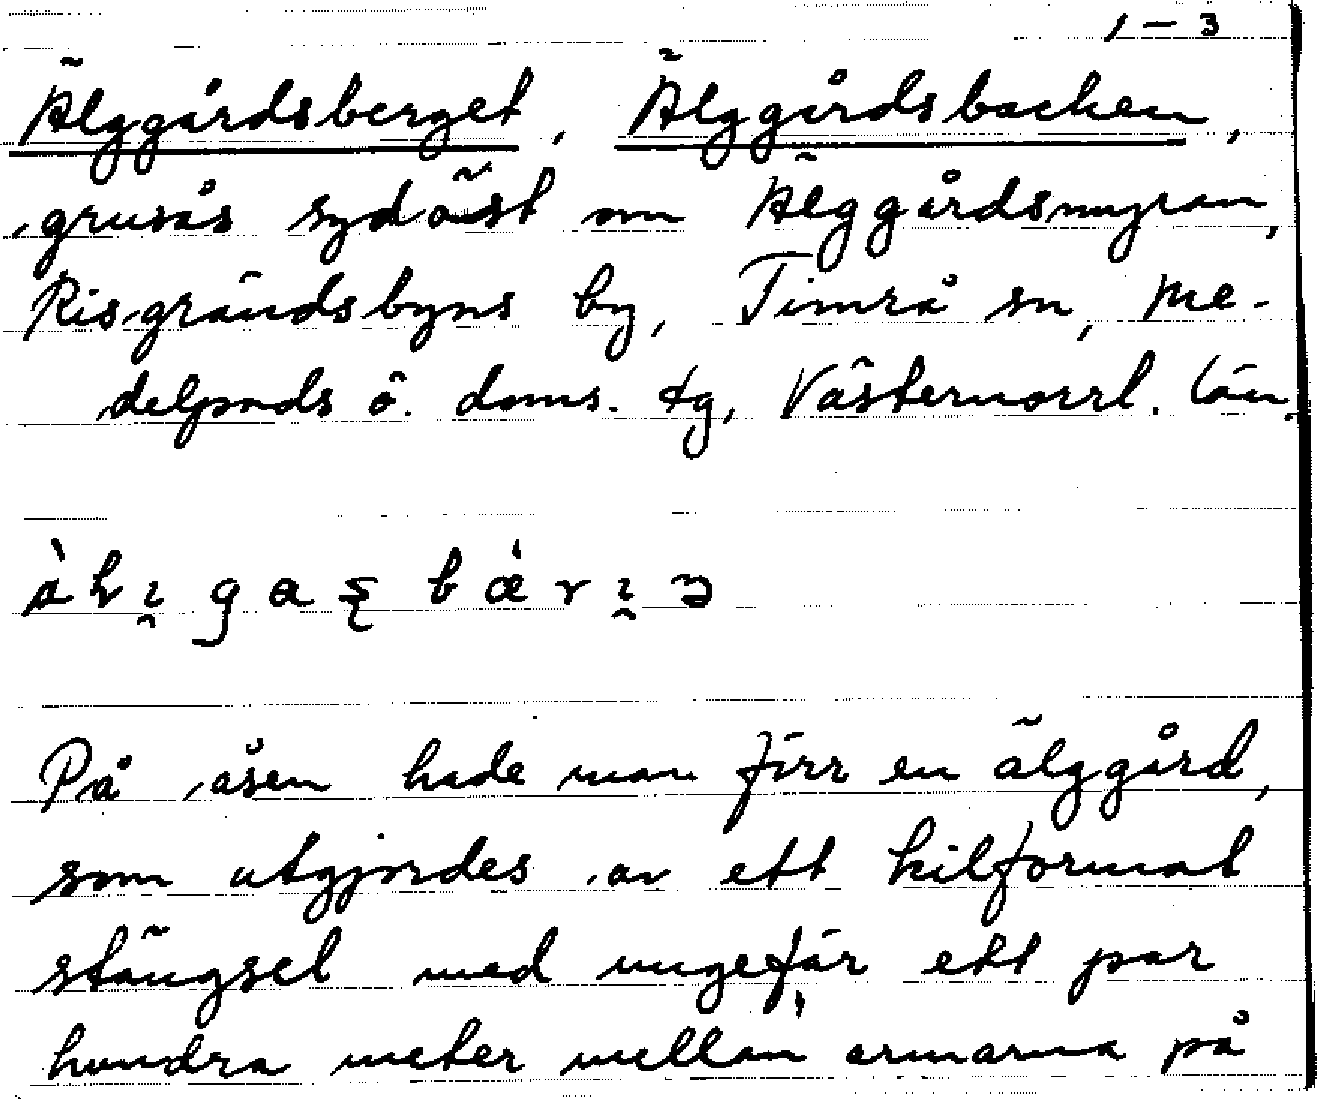 1 – 3
Älggårdsberget, Älggårdsbacken,
grusås sydöst om Älggårdsmyran,
Risgrändsbyns by, Timrå sn, Me-
delpads ö. doms. tg, Västernorrl. län.
På åsen hade man förr en älggård,
som utgjordes av ett kilformat
stängsel med ungefär ett par
hundra meter mellan armarna på